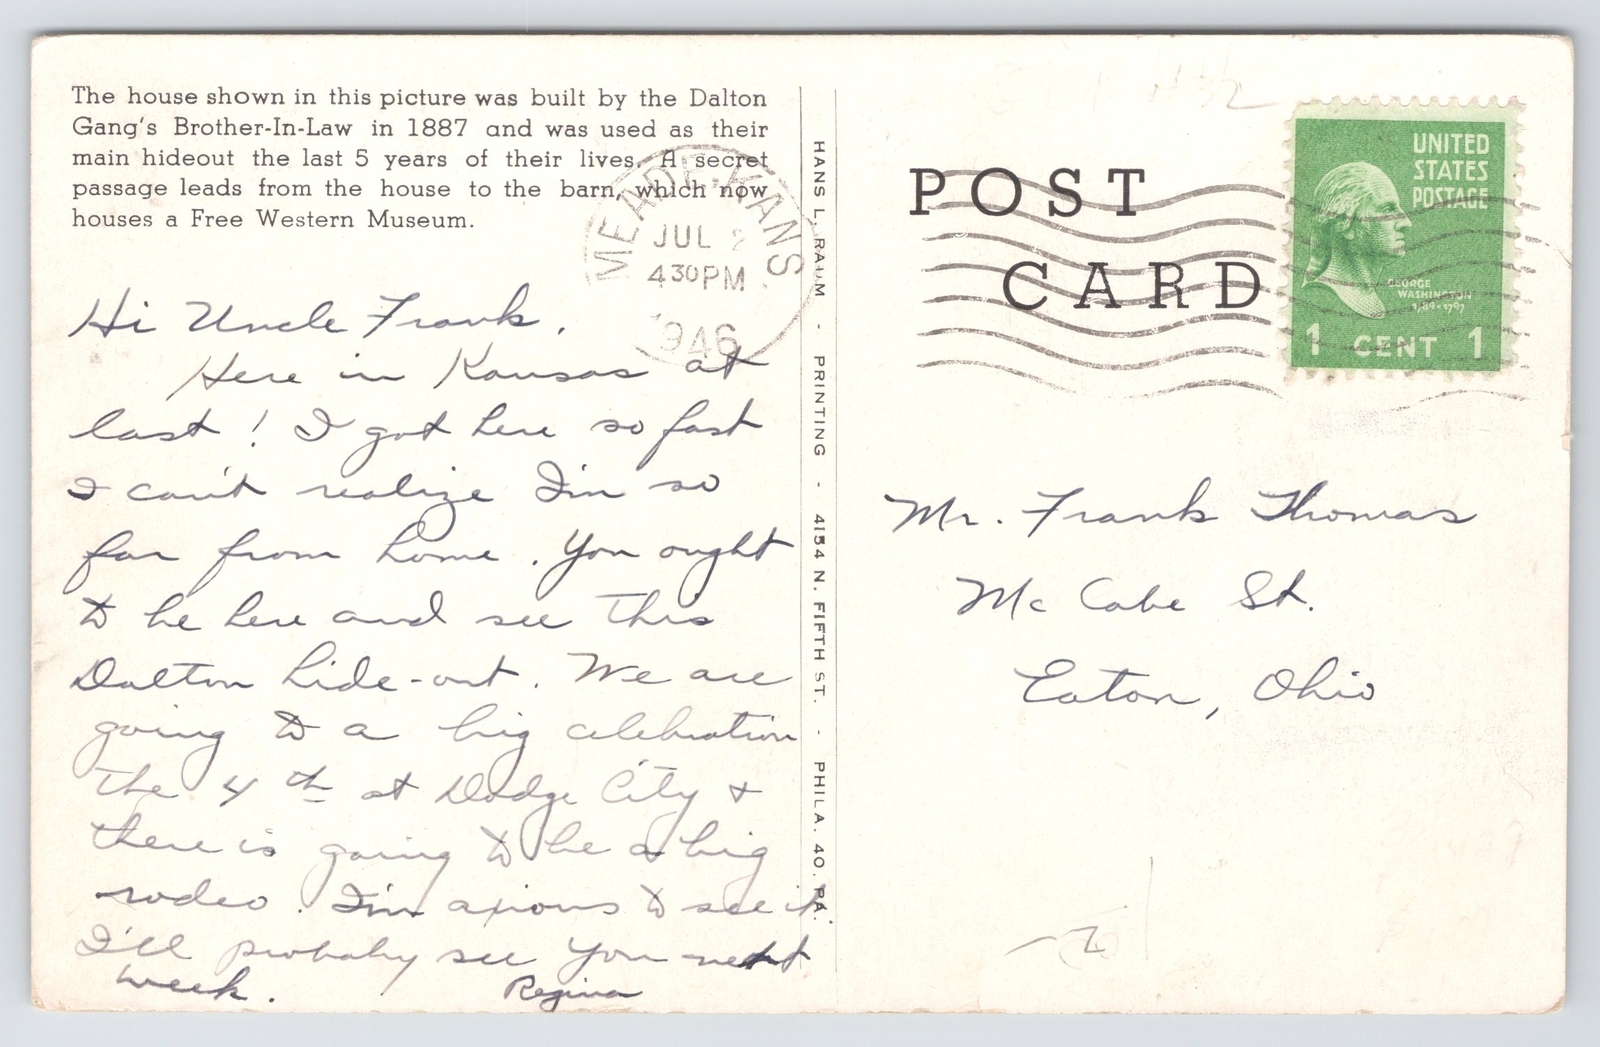 The house shown in this picture was built by the Dalton
Gang's Brother-In-Law in 1887 and was used as their
main hideout the last 5 years of their lives. A secret
passage leads from the house to the barn, which now
houses a Free Western Museum.
MEADE, KANS.
JUL 2
4 30 PM
1946
Hi Uncle Frank,
Here in Kansas at
last! I got here so fast
I can't realize I'm so
far from home. You ought
to be here and see this
Dalton hide-out. We are
going to a big celebration
the 4th at Dodge City &
there is going to be a big
rodeo. I'm axious to see it.
I'll probably see you next
week. Regina
HANS L. RAUM - PRINTING - 4154 N. FIFTH ST. - PHILA. 40. PA.
POST
CARD
UNITED
STATES
POSTAGE
GEORGE
WASHINGTON
1789-1797
1 CENT 1
Mr. Frank Thomas
Mc Cabe St.
Eaton, Ohio